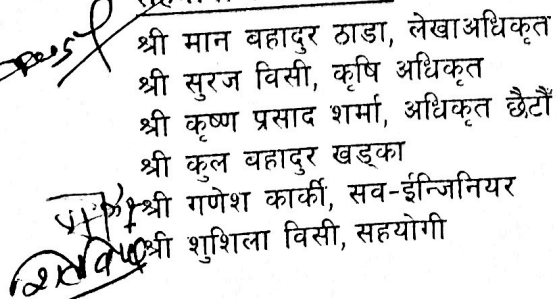 श्री मान वहादुर ठाडा, लेखाअधिकृत
श्री सुरज विसी, कृषि अधिकृत
श्री कृष्ण प्रसाद शर्मा, अधिकृत छैटौँ
श्री कुल वहादुर खड्का
श्री गणेश कार्की, सव-ईन्जिनियर
श्री शुशिला विसी, सहयोगी